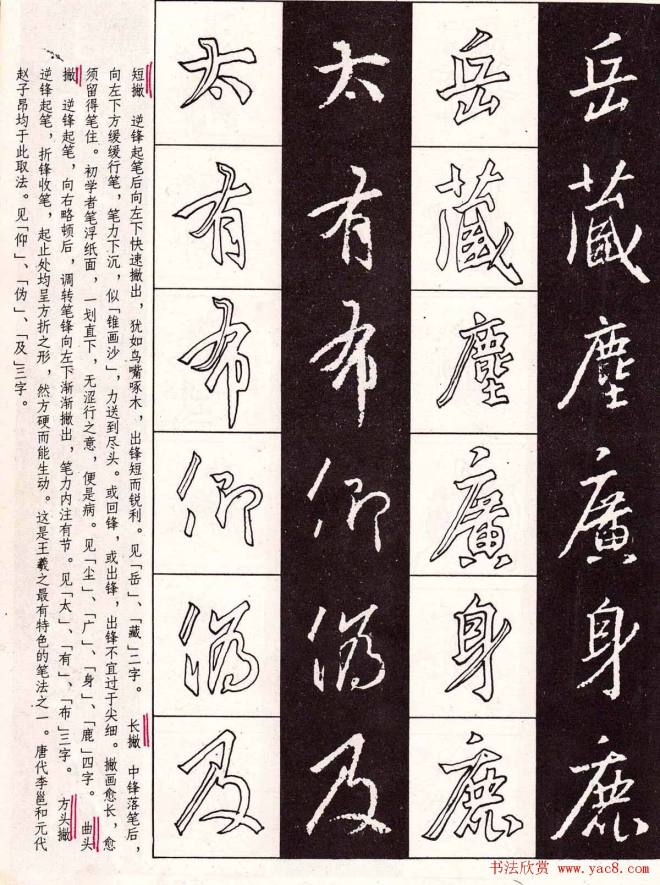 岳藏塵廣身鹿
岳藏塵廣身鹿
太有布仰偽及
太有布仰偽及
短撇　逆锋起笔后向左下快速撇出，犹如鸟嘴啄木，出锋短而锐利。见「岳」、「藏」二字。　长撇　中锋落笔后，
向左下方缓缓行笔，笔力下沉，似「锥画沙」，力送到尽头。或回锋，或出锋，出锋不宜过于尖细。撇画愈长，愈
须留得笔住。初学者笔浮纸面，一划直下，无涩行之意，便是病。见「尘」、「广」、「身」、「鹿」四字。　曲头
撇　逆锋起笔，向右略顿后，调转笔锋向左下渐渐撇出，笔力内注有节。见「太」、「有」、「布」三字。　方头撇
逆锋起笔，折锋收笔，起止处均呈方折之形，然方硬而能生动。这是王羲之最有特色的笔法之一。唐代李邕和元代
赵子昂均于此取法。见「仰」、「伪」、「及」三字。
书法欣赏 www.yac8.com